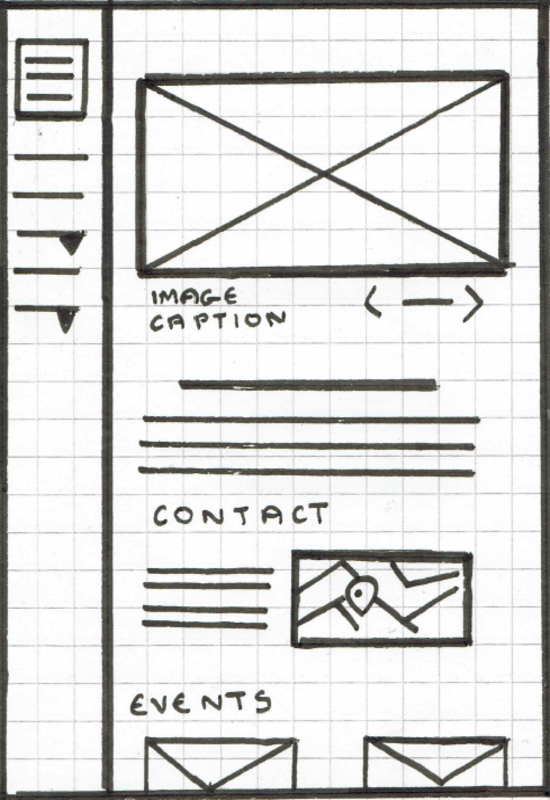 IMAGE
CAPTION
CONTACT
EVENTS